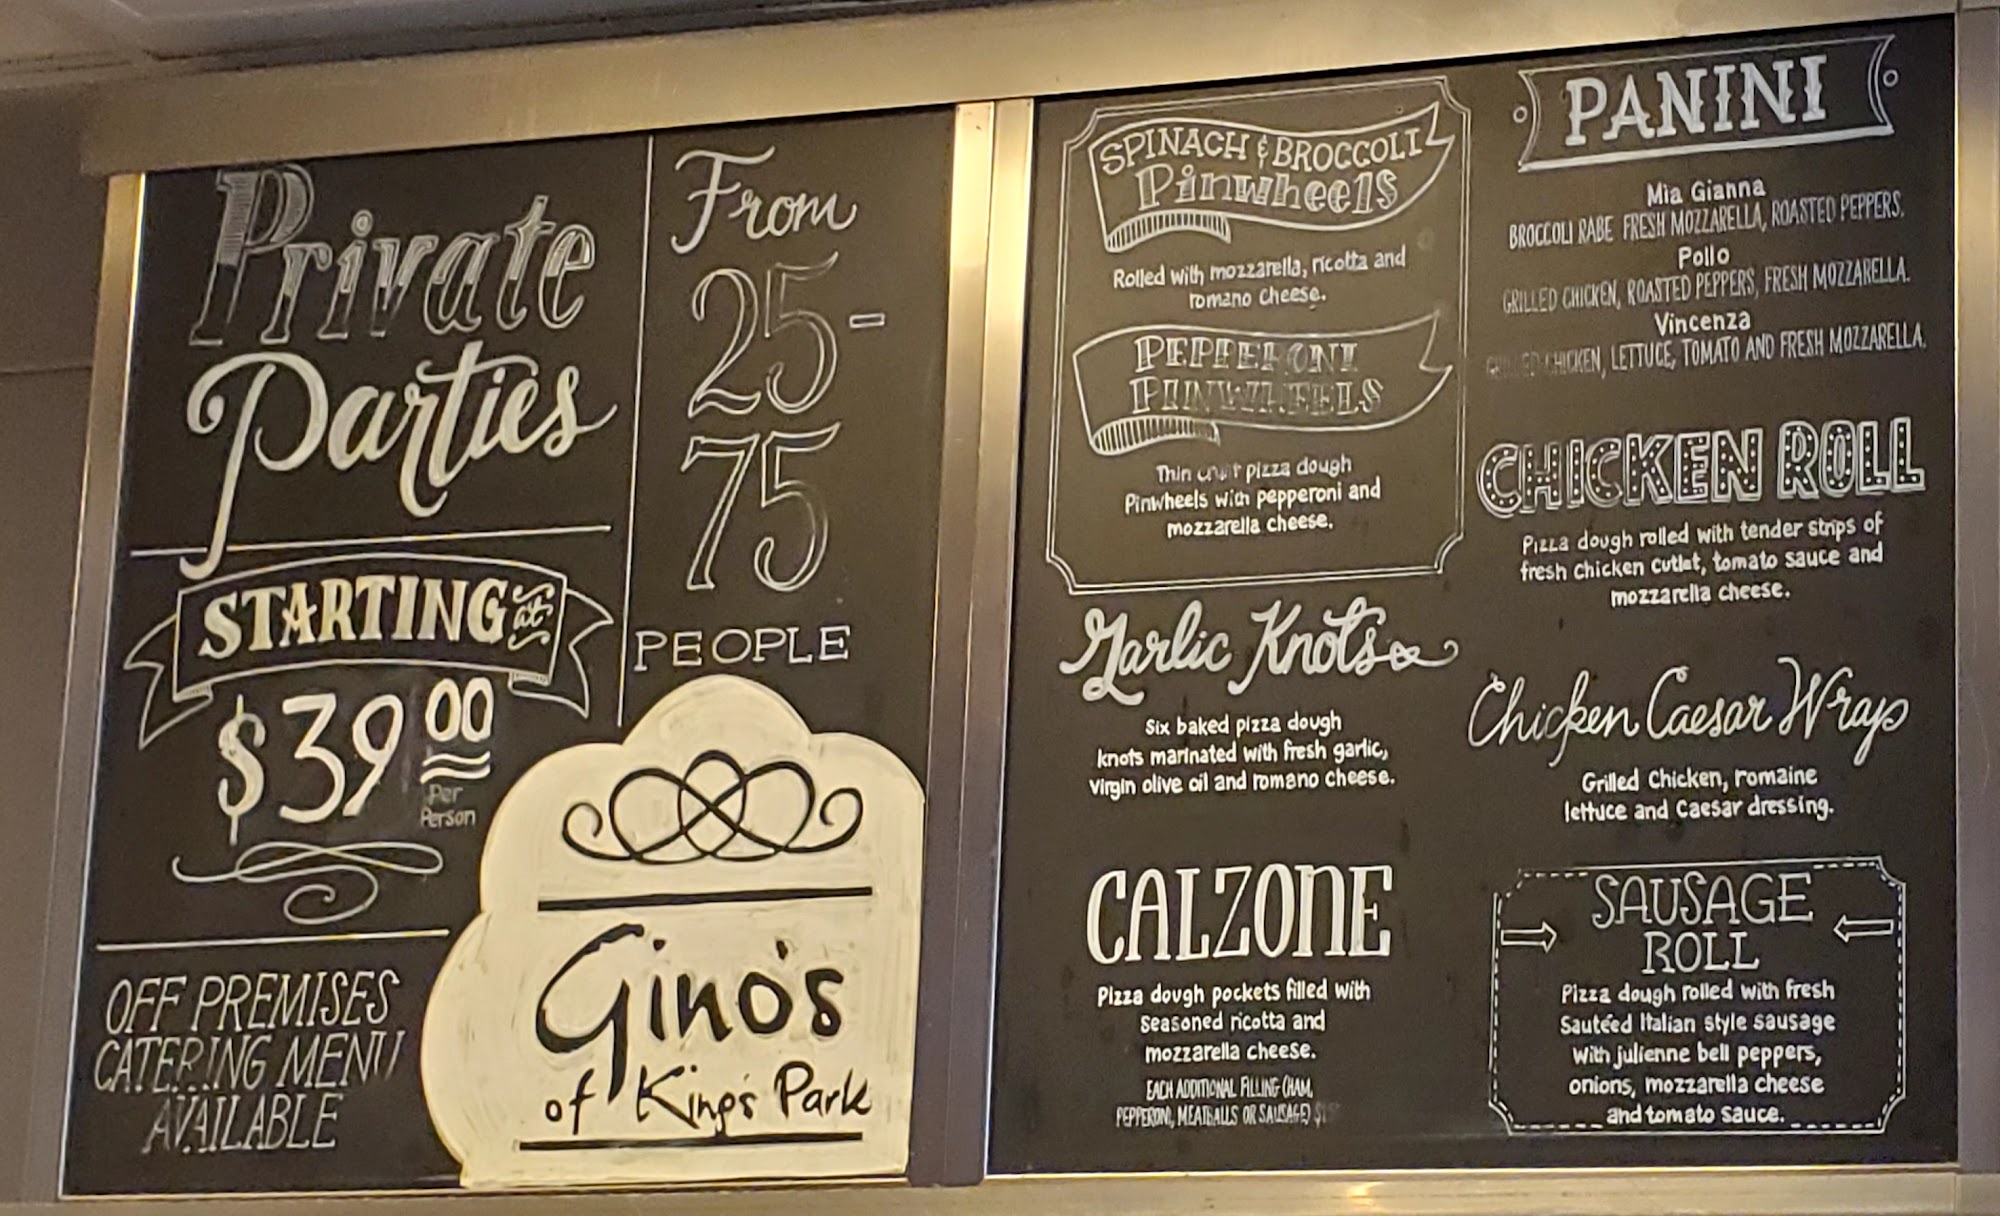 Private
Parties
STARTING at
$39.00
Per
Person
OFF PREMISES
CATERING MENU
AVAILABLE
From
25-
75
PEOPLE
Gino's
of King's Park
SPINACH & BROCCOLI
Pinwheels
Rolled with mozzarella, ricotta and
romano cheese.
PEPPERONI
PINWHEELS
Thin crust pizza dough
Pinwheels with pepperoni and
mozzarella cheese.
Garlic Knots
Six baked pizza dough
knots marinated with fresh garlic,
virgin olive oil and romano cheese.
CALZONE
Pizza dough pockets filled with
seasoned ricotta and
mozzarella cheese.
EACH ADDITIONAL FILLING (HAM,
PEPPERONI, MEATBALLS OR SAUSAGE)
PANINI
Mia Gianna
BROCCOLI RABE FRESH MOZZARELLA, ROASTED PEPPERS.
Pollo
GRILLED CHICKEN, ROASTED PEPPERS, FRESH MOZZARELLA.
Vincenza
GRILLED CHICKEN, LETTUCE, TOMATO AND FRESH MOZZARELLA.
CHICKEN ROLL
Pizza dough rolled with tender strips of
fresh chicken cutlet, tomato sauce and
mozzarella cheese.
Chicken Caesar Wrap
Grilled Chicken, romaine
lettuce and Caesar dressing.
SAUSAGE
ROLL
Pizza dough rolled with fresh
Sautéed Italian style sausage
with julienne bell peppers,
onions, mozzarella cheese
and tomato sauce.